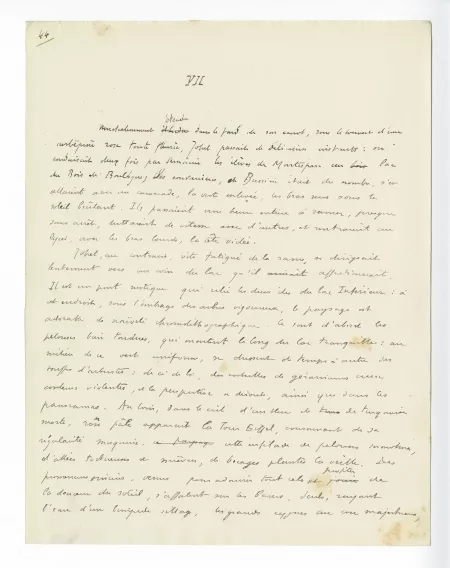 44
VII
étendu
Nonchalamment dans le fond de son canot, sous le couvert d'une
aubépine rose toute fleurie, Jobal passait de délicieux instants : on
conduisait deux fois par semaine les élèves de au bois lac
du Bois de Boulogne ; des conversions, et Bussini était du nombre, s'en
allaient avec un camarade, la veste enlevée, les bras nus sous le
soleil brûlant. Ils passaient une heure entière à ramer, presque
sans arrêt, luttaient de vitesse avec d'autres, et rentraient au
lycée, avec les bras lourds, la tête vidée.
Jobal, au contraire, vite fatigué de la rame, se dirigeait
lentement vers un coin du lac qu'il aimait
Il est un pont rustique qui relie les deux îles du lac Inférieur : à
cet endroit, sous l'ombrage des arbres vigoureux, le paysage est
adorable de chromolithographique. Ce sont d'abord les
pelouses bien tondues, qui montent le long du lac tranquille : au
milieu de ce vert uniforme, se dressent de temps à autre des
touffes d'arbustes ; de ci de là, des corbeilles de géraniums
couleurs violentes, et la perspective ainsi que dans les
panoramas. Au loin, dans le ciel d'un bleu de turquoise
morte, apparaît la Tour Eiffel, couronnant de sa
régularité cette de pelouses
d'allées de bocages plantés la veille. Des
profiter
promeneurs venus pour admirer tout cela et de
la douceur du soleil, s'affalent sur les bancs. Seuls, rayant
l'eau d'un limpide sillage, les grands cygnes majestueux,